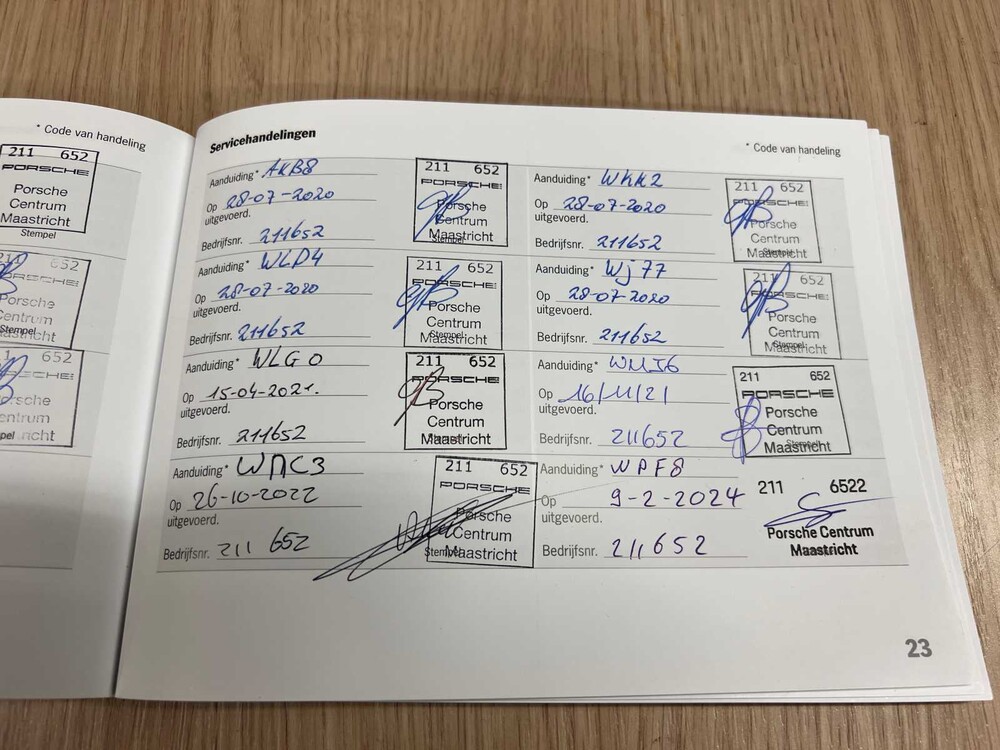 * Code van handeling
211 652
PORSCHE
Porsche
Centrum
Maastricht
Stempel
652
Porsche
Centrum
Maastricht
Stempel
652
Servicehandelingen
* Code van handeling
Aanduiding* AKB8
Op 28-07-2020
uitgevoerd.
Bedrijfsnr. 211652
211 652
PORSCHE
Porsche
Centrum
Maastricht
Stempel
Aanduiding* WKK2
Op 28-07-2020
uitgevoerd.
Bedrijfsnr. 211652
211 652
PORSCHE
Porsche
Centrum
Maastricht
Stempel
Aanduiding* WLD4
Op 28-07-2020
uitgevoerd.
Bedrijfsnr. 211652
211 652
PORSCHE
Porsche
Centrum
Maastricht
Stempel
Aanduiding* Wj77
Op 28-07-2020
uitgevoerd.
Bedrijfsnr. 211652
211 652
PORSCHE
Porsche
Centrum
Maastricht
Stempel
Aanduiding* WLG0
Op 15-04-2021.
uitgevoerd.
Bedrijfsnr. 211652
211 652
PORSCHE
Porsche
Centrum
Maastricht
Stempel
Aanduiding* WMI6
Op 16/11/21
uitgevoerd.
Bedrijfsnr. 211652
211 652
PORSCHE
Porsche
Centrum
Maastricht
Stempel
Aanduiding* WMC3
Op 26-10-2022
uitgevoerd.
Bedrijfsnr. 211 652
211 652
PORSCHE
Porsche
Centrum
Maastricht
Stempel
Aanduiding* WPF8
Op 9-2-2024
uitgevoerd.
Bedrijfsnr. 211652
211 6522
Porsche Centrum
Maastricht
23